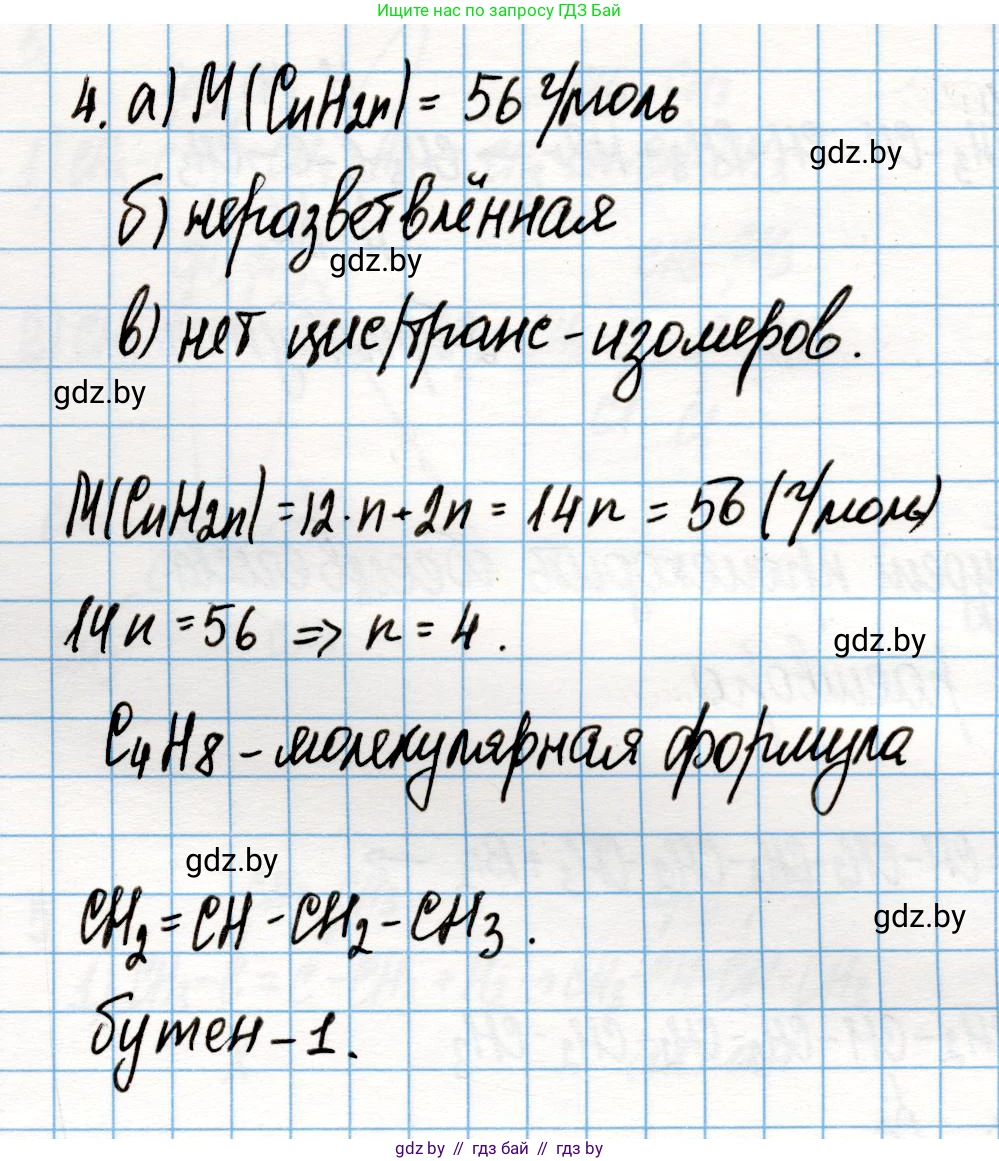 Ищите нас по запросу ГДЗ Бай
4. а) M(CnH2n) = 56 г/моль
gdz.by
б) неразветвлённая
gdz.by
в) нет цис/транс-изомеров.
gdz.by
M(CnH2n) = 12·n+2n = 14n = 56 (г/моль)
14n = 56 => n = 4.
gdz.by
C4H8 – молекулярная формула
gdz.by
CH2=CH-CH2-CH3.
gdz.by
бутен-1.
gdz.by // гдз бай // гдз by